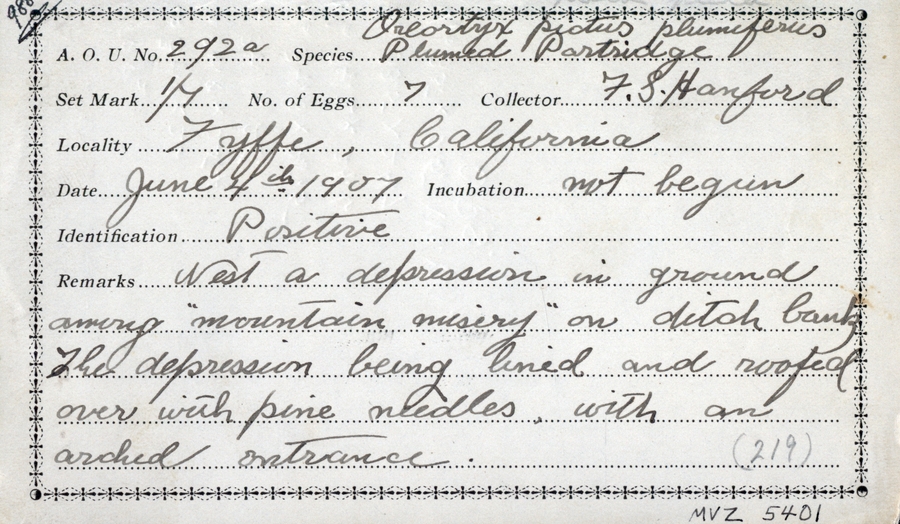 Oreortyx pictus plumiferus
A. O. U. No. 292a Species Plumed Partridge
Set Mark 1/7 No. of Eggs 7 Collector F. S. Hanford
Locality Fyffe, California
Date June 4th 1907 Incubation not begun
Identification Positive
Remarks Nest a depression in ground
among "mountain misery" on ditch bank
The depression being lined and roofed
over with pine needles, with an
arched entrance.
(219)
MVZ 5401